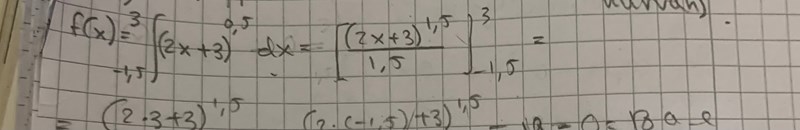 f(x) = ³∫₋₁,₅ (2x+3)^0,5 dx = [(2x+3)^1,5 / 1,5]³₋₁,₅ =
= (2·3+3)^1,5 (2·(-1,5)+3)^1,5